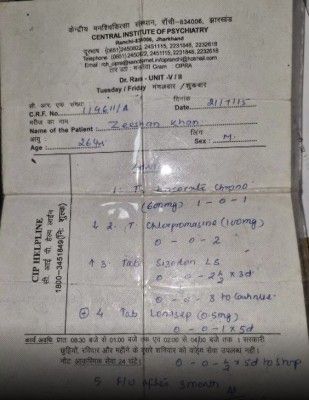 केन्द्रीय मनश्चिकित्सा संस्थान, राँची-834006, झारखंड
CENTRAL INSTITUTE OF PSYCHIATRY
Ranchi-834006, Jharkhand
दूरभाष (0651)2450802, 2451115, 2231848, 2232618
Telephone: (0651)2450802, 2451115, 2231848, 2232618
CIPRA
Dr. Ram - UNIT -V / II
Tuesday / Friday मंगलवार / शुक्रवार
सी. आर. एफ. संख्या
C.R.F. No.
दिनांक
Date 21/7/15
मरीज का नाम
Name of the Patient: Zeeshan Khan
आयु
Age: 26 yr
लिंग
Sex: M.
CIP HELPLINE
सी. आई. पी. हेल्प लाईन
1800-3451849(नि: शुल्क)
1. T. Chrono
(600mg) 1-0-1
2. T. Chlorpromazine (100mg)
0-0-2
3. Tab Sizodon LS
0-0-2½ x 3d
0-0-3 to continue
4. Tab Lonazep (0.5mg)
0-0-1 x 5d
0-0-½ x 5d to stop
कार्य अवधि: प्रातः 08.30 बजे से 01.00 बजे तक एवं 02.00 से 04.00 बजे तक। सरकारी
छुट्टियों, रविवार और महीने के दूसरे शनिवार को बहिरंग सेवा उपलब्ध नहीं।
नोट: आकस्मिक सेवा 24 घंटे।
5. F/U after 3 month